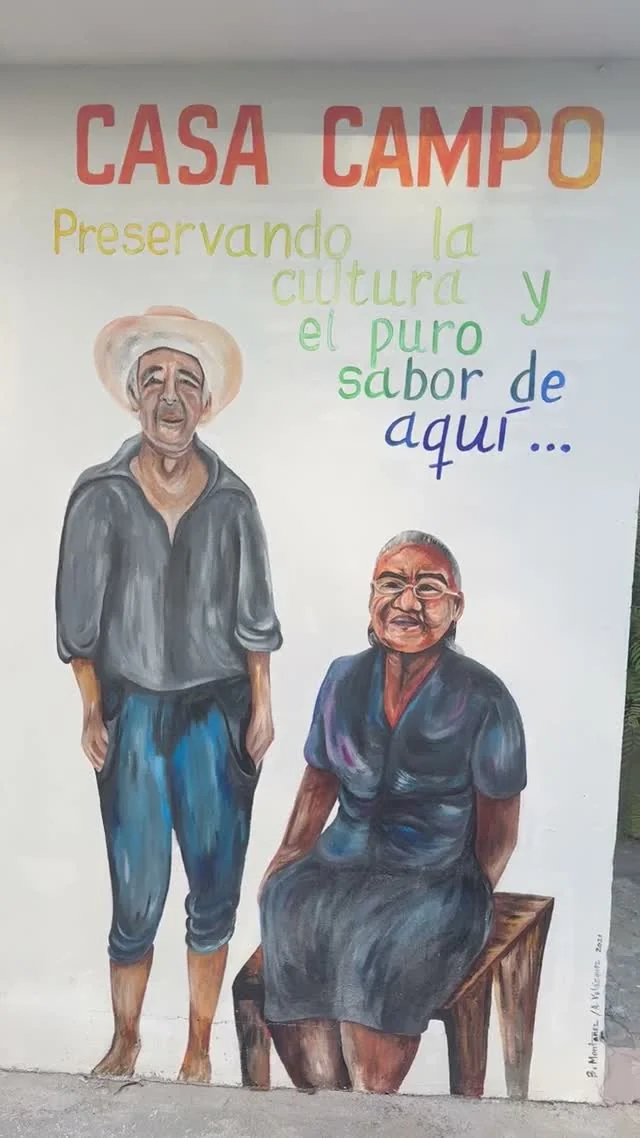 CASA CAMPO
Preservando la
cultura y
el puro
sabor de
aquí...
B. Montañez / A. Velázquez 2021